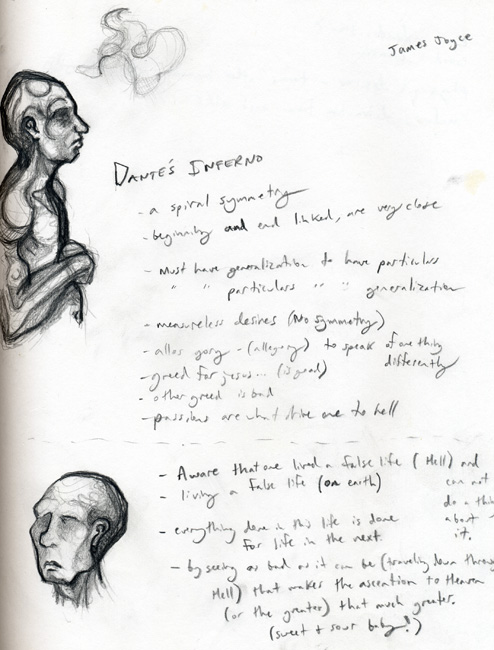 James Joyce
DANTE'S INFERNO
- a spiral symmetry
- beginning and end linked, are very close
- Must have generalization to have particulars
" " particulars " " generalization
- measureless desires (No symmetry)
- allos gory - (allegory) to speak of one thing
differently
- greed for jesus... (is good)
- other greed is bad
- passions are what drive one to hell
- Aware that one lived a false life (Hell) and
can not
do a thin
about
it.
- living a false life (on earth)
- everything done in this life is done
for life in the next.
- by seeing as bad as it can be (traveling down throug
Hell) that makes the ascention to Heaven
(or the greater) that much greater.
(sweet + sour baby!)